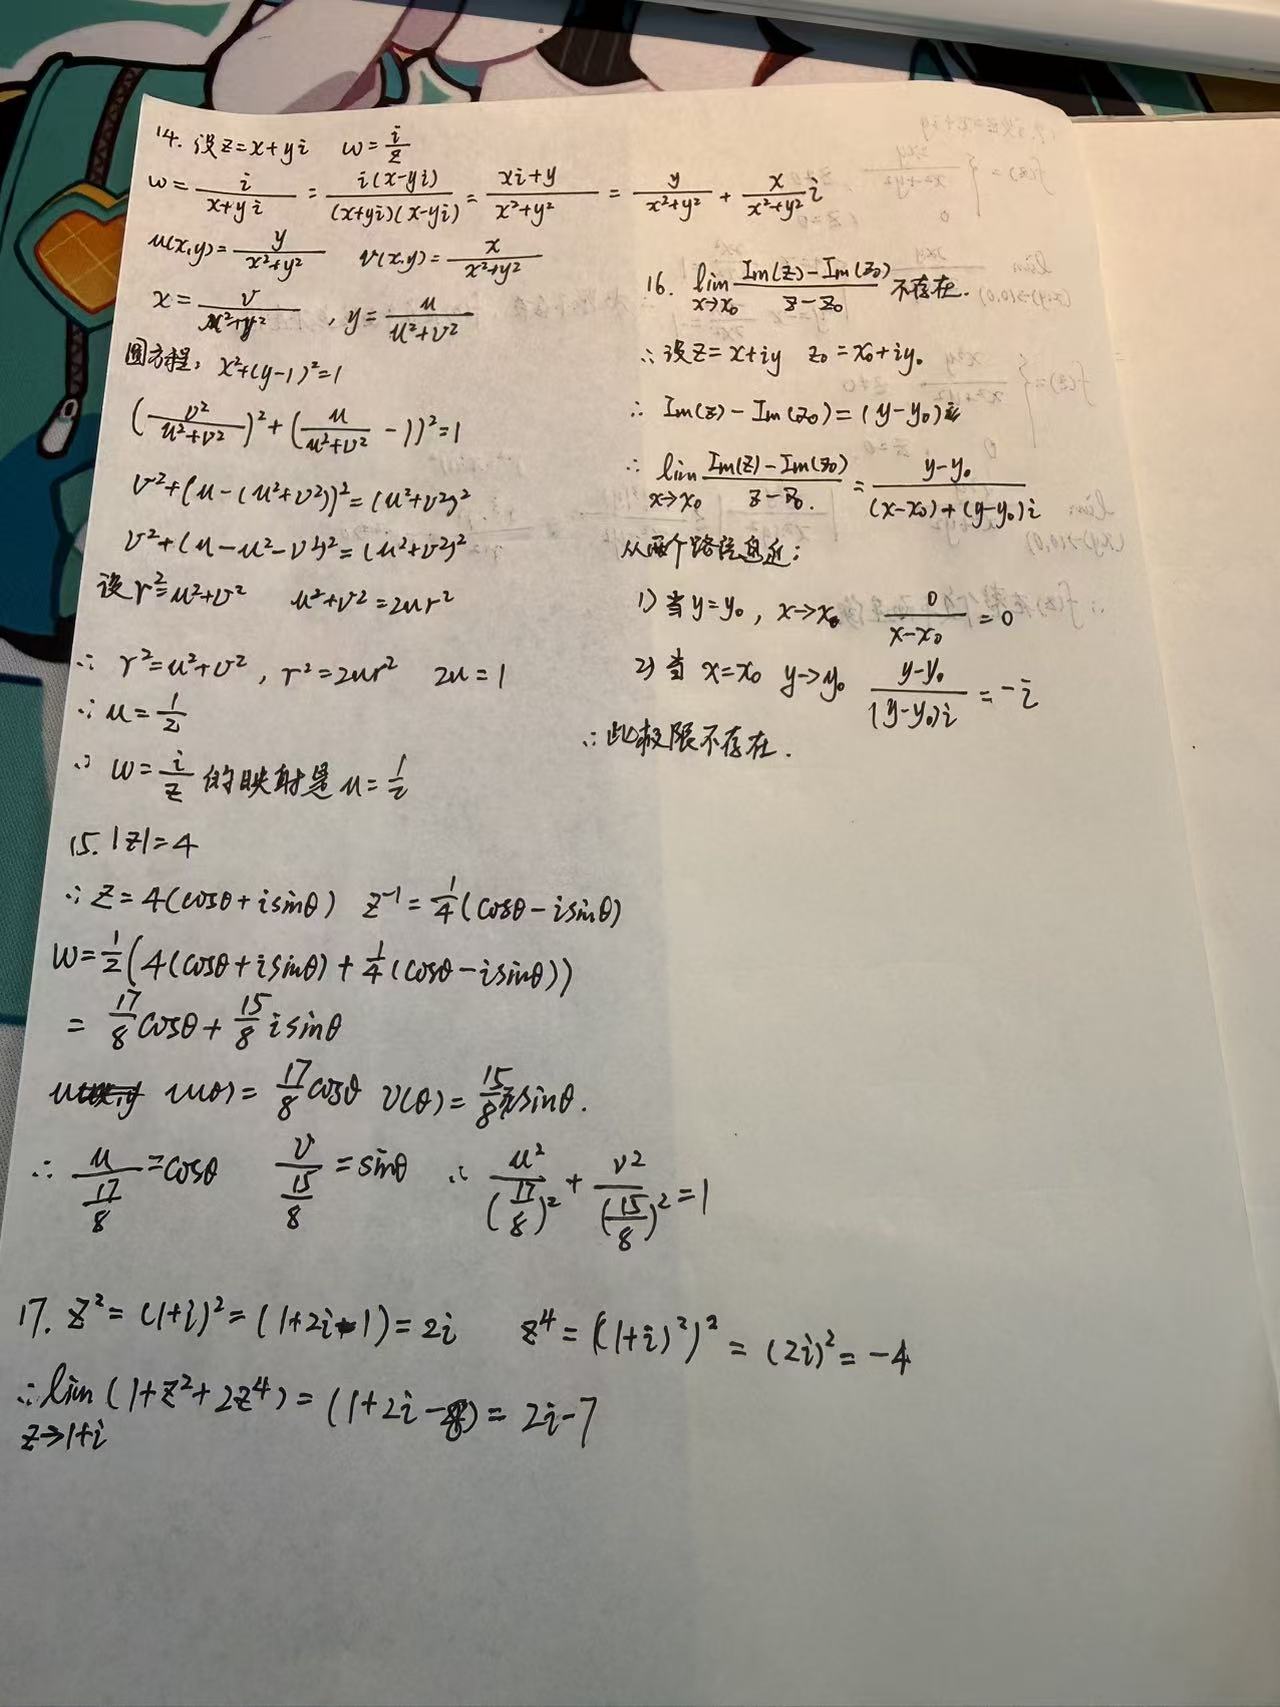 14. 设z=x+yi w=i/z
w=i/(x+yi)=i(x-yi)/((x+yi)(x-yi))=(xi+y)/(x²+y²)=y/(x²+y²)+x/(x²+y²)i
u(x,y)=y/(x²+y²) v(x,y)=x/(x²+y²)
x=v/(u²+v²), y=u/(u²+v²)
圆方程: x²+(y-1)²=1
(v²/(u²+v²))²+(u/(u²+v²)-1))²=1
v²+(u-(u²+v²))²=(u²+v²)²
v²+(u-u²-v²)²=(u²+v²)²
设r²=u²+v² u²+v²=2ur²
∴ r²=u²+v², r²=2ur² 2u=1
∴ u=1/2
∴ w=i/z 的映射是u=1/2
15. |z|=4
∴ z=4(cosθ+isinθ) z⁻¹=1/4(cosθ-isinθ)
w=1/2(4(cosθ+isinθ)+1/4(cosθ-isinθ))
=17/8cosθ+15/8isinθ
u(θ)=17/8cosθ v(θ)=15/8sinθ.
∴ u/(17/8)=cosθ v/(15/8)=sinθ ∴ u²/(17/8)²+v²/(15/8)²=1
16. lim x→x₀ (Im(z)-Im(z₀))/(z-z₀) 不存在.
∴设z=x+iy z₀=x₀+iy₀
∴ Im(z)-Im(z₀)=(y-y₀)
∴ lim x→x₀ (Im(z)-Im(z₀))/(z-z₀)=(y-y₀)/((x-x₀)+(y-y₀)i)
从两个路径
1) 当y=y₀, x→x₀ 0/(x-x₀)=0
2) 当 x=x₀ y→y₀ (y-y₀)/((y-y₀)i)=-i
∴此极限不存在.
17. z²=(1+i)²=(1+2i-1)=2i z⁴=((1+i)²)²=(2i)²=-4
∴lim z→1+i (1+z²+2z⁴)=(1+2i-8)=2i-7